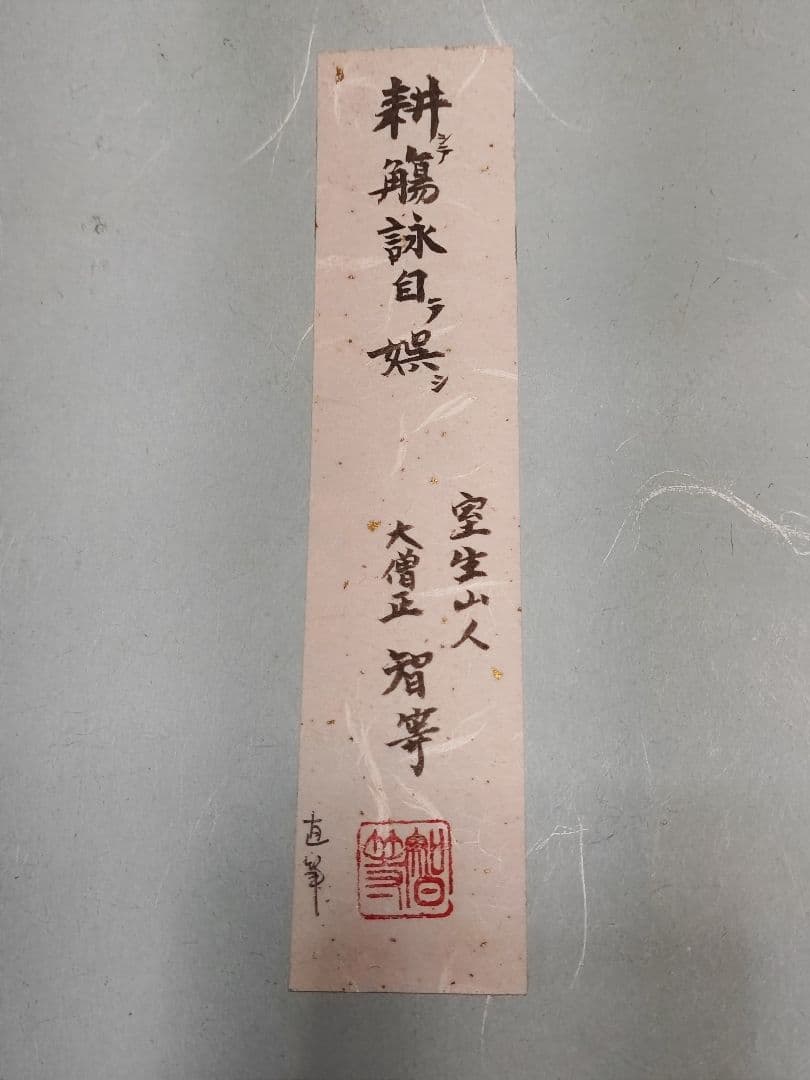 耕シテ觴詠自テ娯シ
室生山人
大僧正 智等
智等
直筆